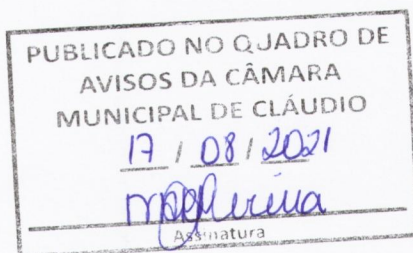 PUBLICADO NO QUADRO DE
AVISOS DA CÂMARA
MUNICIPAL DE CLÁUDIO
17 / 08 / 2021
Assinatura